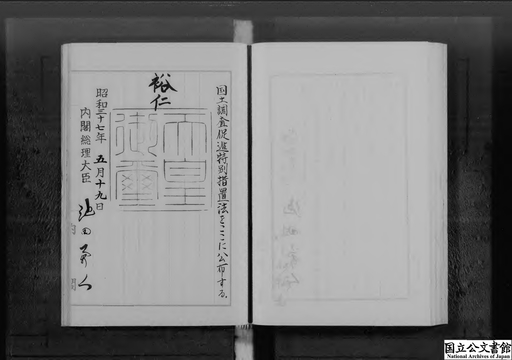 国土調査促進特別措置法をここに公布する。
裕仁
天皇
御璽
昭和三十七年五月十九日
内閣総理大臣 池田勇人
国立公文書館
National Archives of Japan